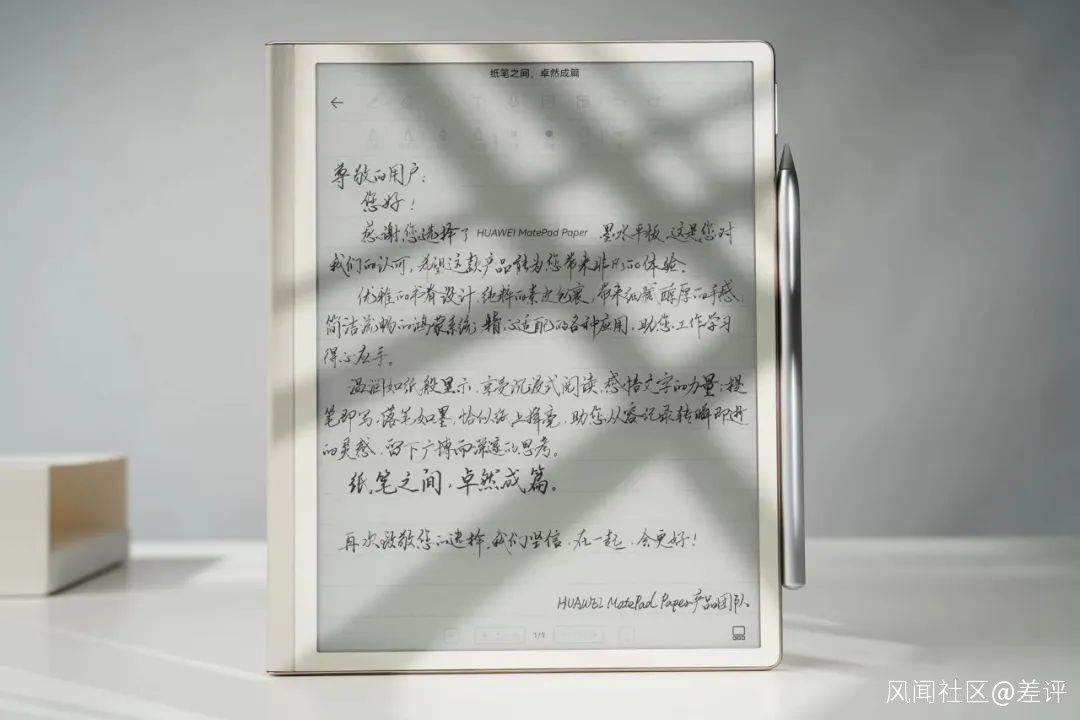 纸笔之间，卓然成篇
尊敬的用户：
您好！
感谢您选择了 HUAWEI MatePad Paper 墨水平板，这是您对
我们的认可，希望这款产品能为您带来非凡的体验。
优雅的书脊设计，纯粹的素皮包裹，带来细腻醇厚的手感，
简洁流畅的鸿蒙系统，精心适配的各种应用，助您工作学习
得心应手。
温润如纸般显示，享受沉浸式阅读，感悟文字的力量；提
笔即写，落笔如墨，恰似纸上挥毫，助您从容记录转瞬即逝
的灵感，留下广博而深邃的思考。
纸笔之间，卓然成篇。
再次致敬您的选择，我们坚信，在一起，会更好！
HUAWEI MatePad Paper产品团队
1/1
风闻社区@差评